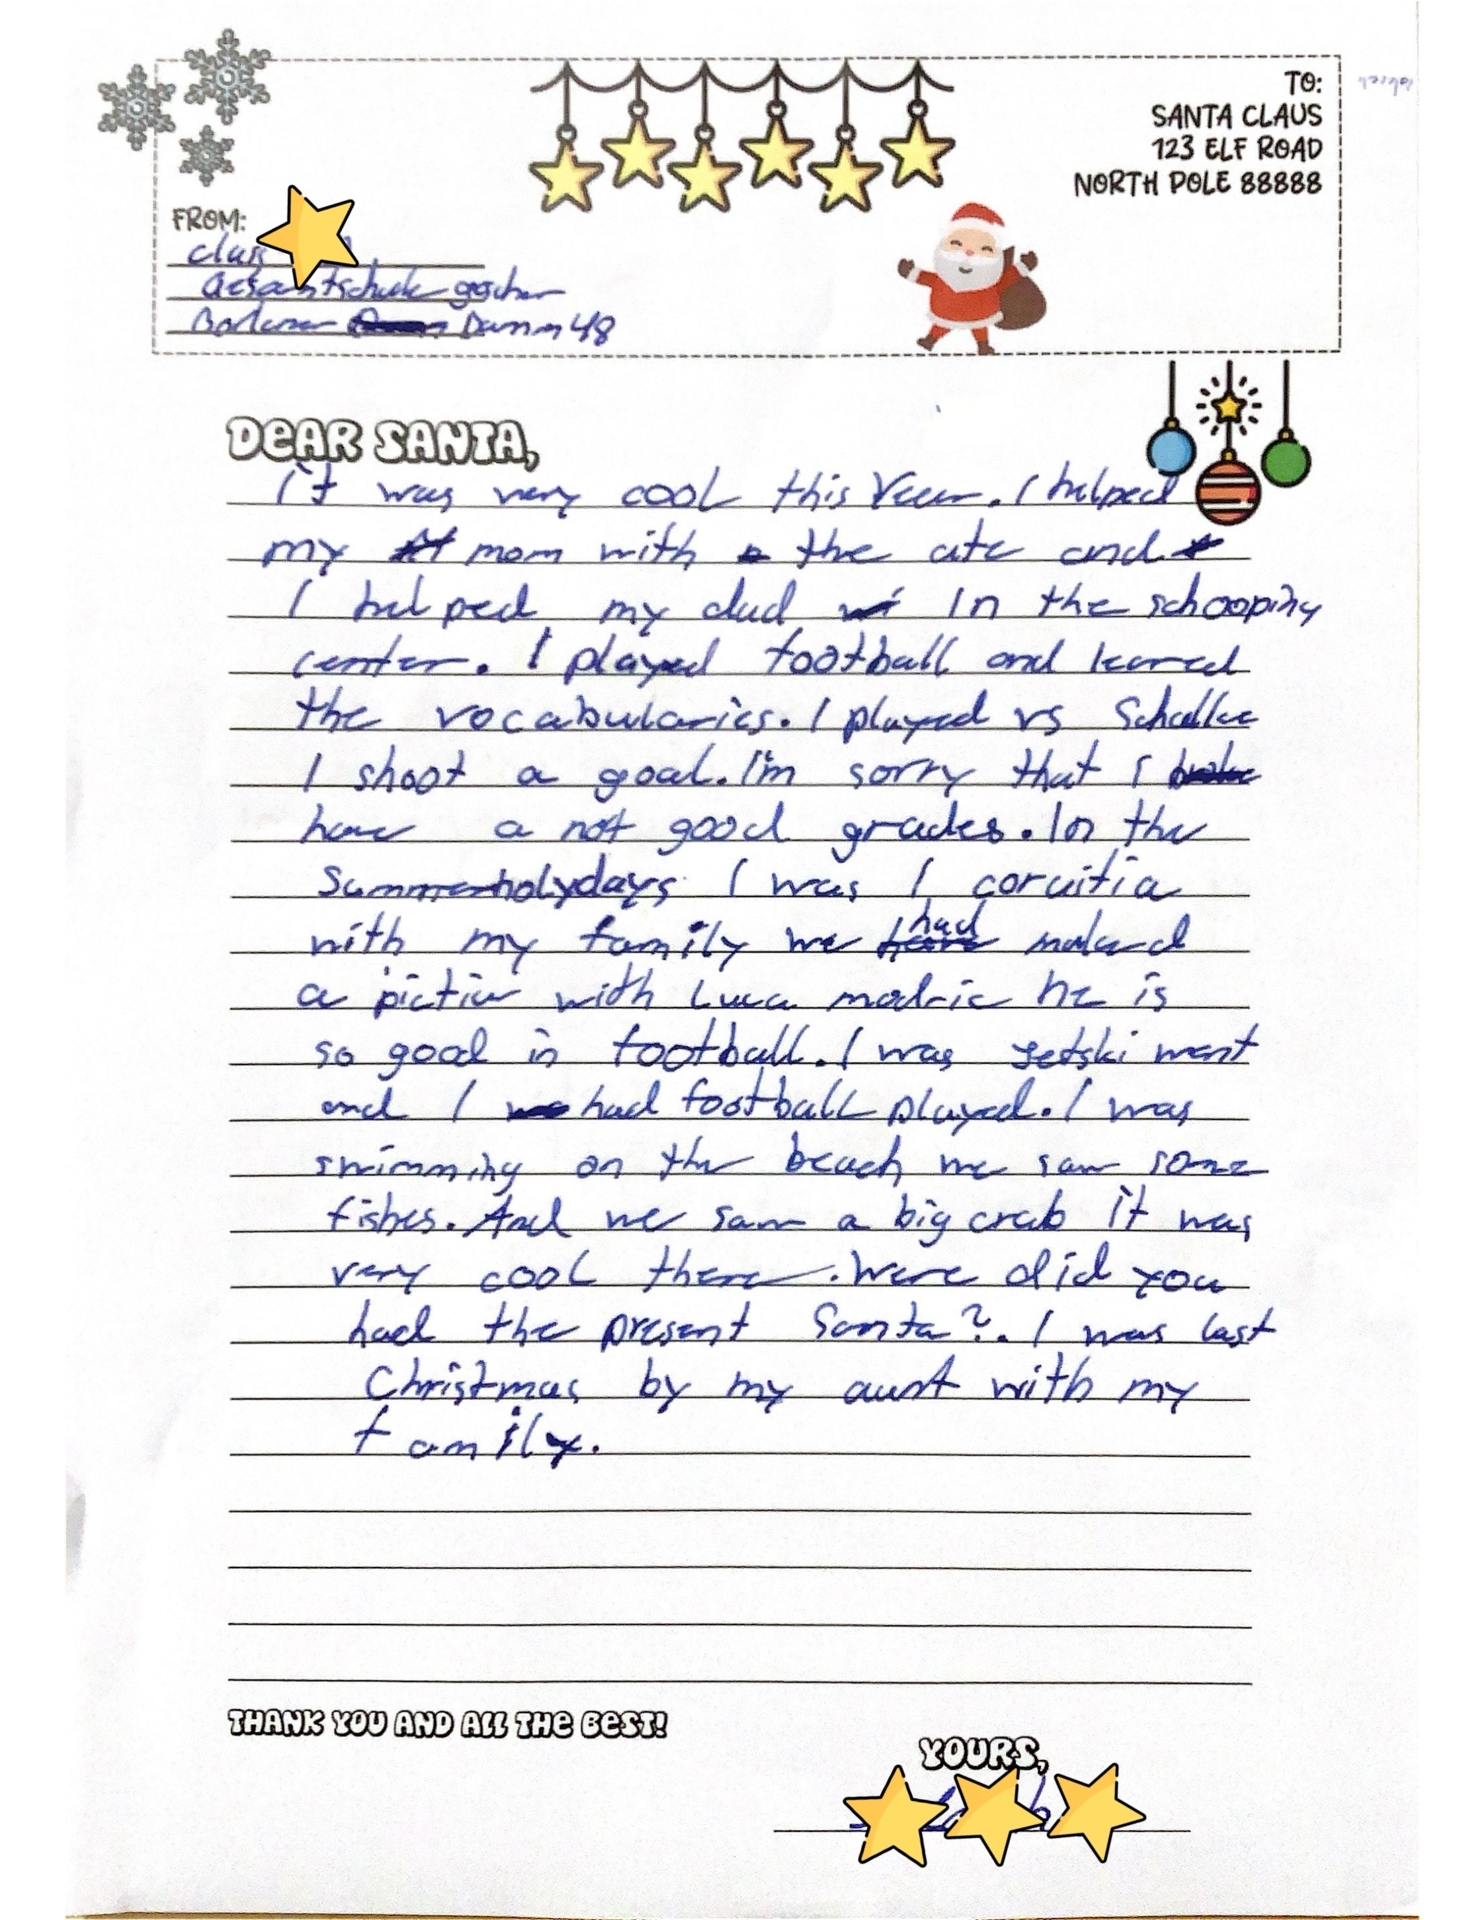 TO:
SANTA CLAUS
123 ELF ROAD
NORTH POLE 88888
FROM:
class
Gesamtschule gescher
Borkener Damm 48
DEAR SANTA,
it was very cool this Year. I helped
my mom with the ate and
I helped my dad in the schooping
center. I played football and learned
the vocabularies. I played vs Schalke
I shoot a goal. I'm sorry that I
have a not good grades. In the
Summerholydays I was I coruitia
with my family we had maked
a pictur with Luca modric he is
so good in football. I was jetski went
and I had football played. I was
swimming on the beach we saw some
fishes. And we saw a big crab it was
very cool there. Were did you
had the present Santa?. I was last
Christmas by my aunt with my
family.
THANK YOU AND ALL THE BEST!
YOURS,